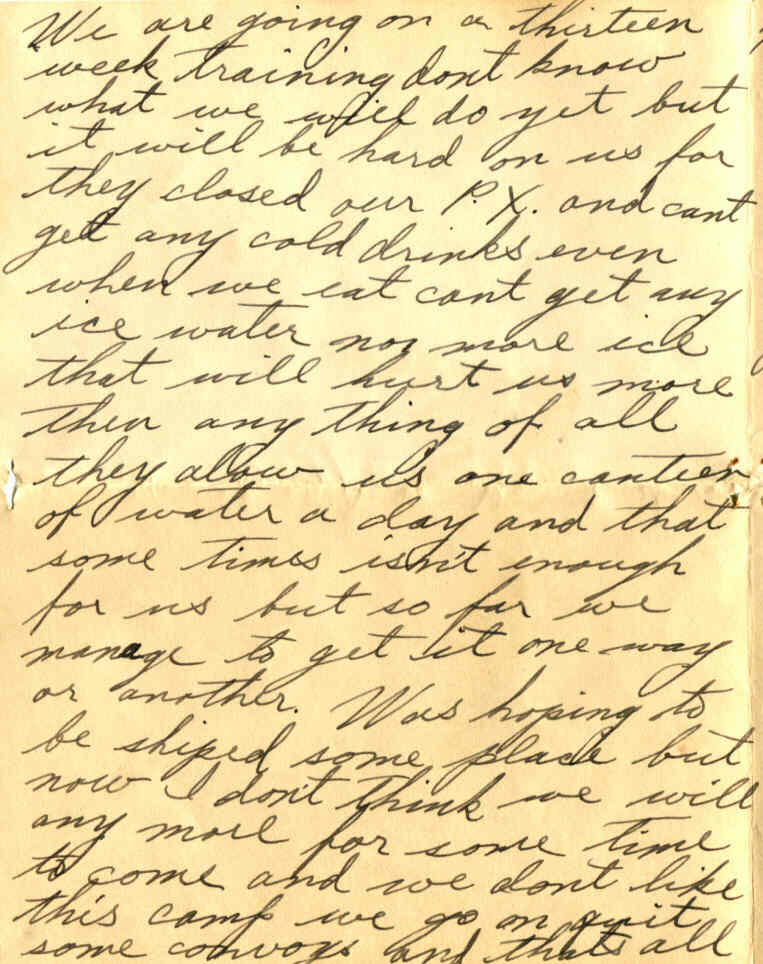 We are going on a thirteen
week training dont know
what we will do yet but
it will be hard on us for
they closed our P.X. and cant
get any cold drinks even
when we eat cant get any
ice water nor more ice
that will hurt us more
then any thing of all
they alow us one canteen
of water a day and that
some times isn't enough
for us but so far we
manage to get it one way
or another. Was hoping to
be shiped some place but
now I don't think we will
any more for some time
to come and we dont like
this camp we go on quit
some convoys and thats all